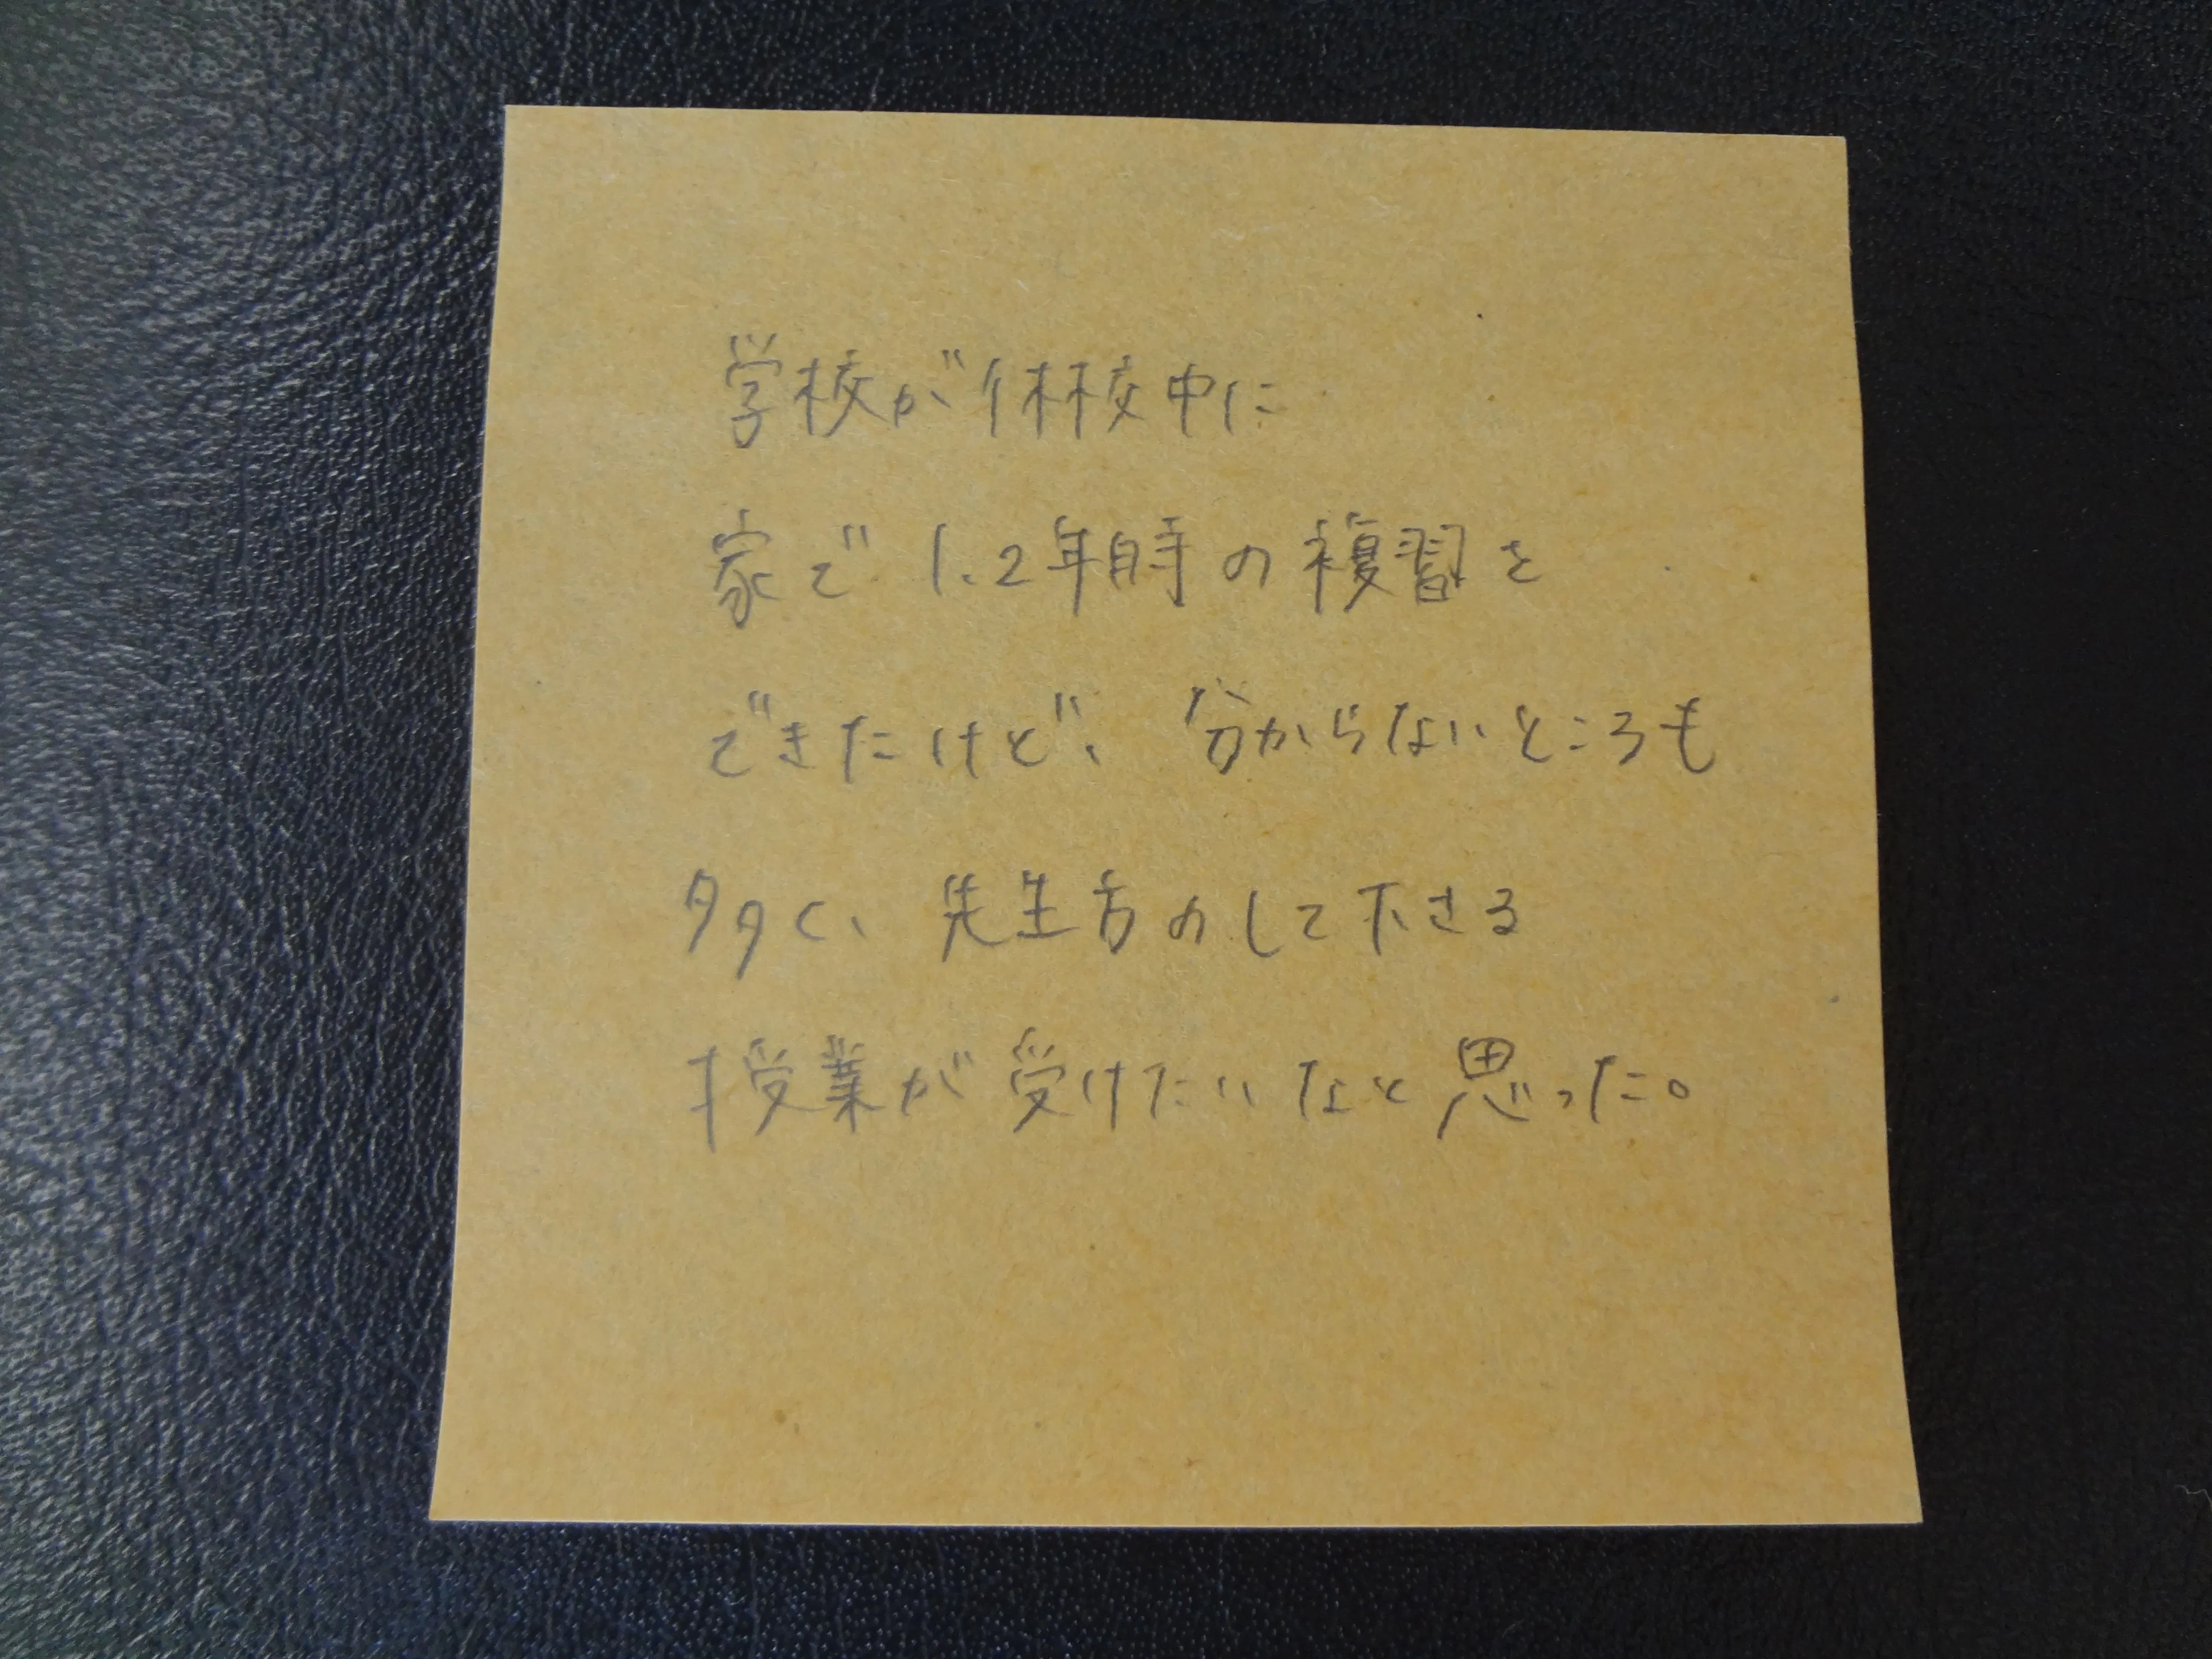 学校が休校中に
家で1、2年時の複習を
できたけど、分からないところも
多く、先生方のして下さる
授業が受けたいなと思った。